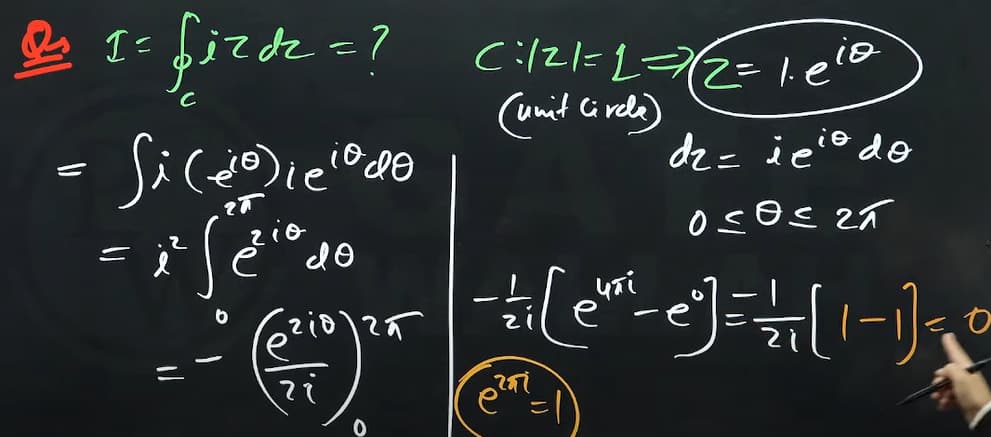 Q, I = ∮_C i z dz = ?
C: |z| = 1 ⇒ z = 1. e^{iθ}
(unit Circle)
dz = i e^{iθ} dθ
0 ≤ θ ≤ 2π
= ∫ i (e^{iθ}) i e^{iθ} dθ
= i² ∫_0^{2π} e^{2iθ} dθ
= - (e^{2iθ} / 2i)_0^{2π}
-1/2i [e^{4πi} - e^0] = -1/2i [1-1] = 0
e^{2πi} = 1